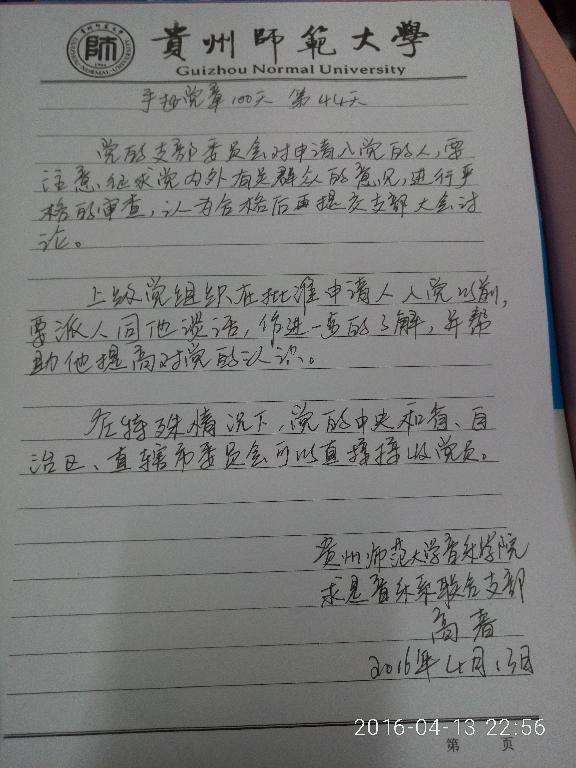 貴州師範大學
Guizhou Normal University
手抄党章100天 第44天
党的支部委员会对申请入党的人,要
注意征求党内外有关群众的意见,进行严
格的审查,认为合格后再提交支部大会讨
论。
上级党组织在批准申请人入党以前,
要派人同他谈话,作进一步的了解,并帮
助他提高对党的认识。
在特殊情况下,党的中央和省、自
治区、直辖市委员会可以直接接收党员。
贵州师范大学音乐学院
求是音乐系联合支部
高春
2016年4月13日
2016-04-13 22:56
第 页